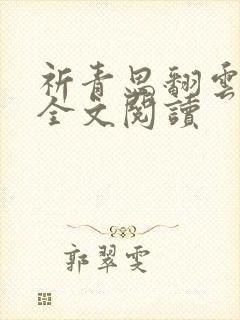 祈青思翻雲
全文閱讀
郭翠雯